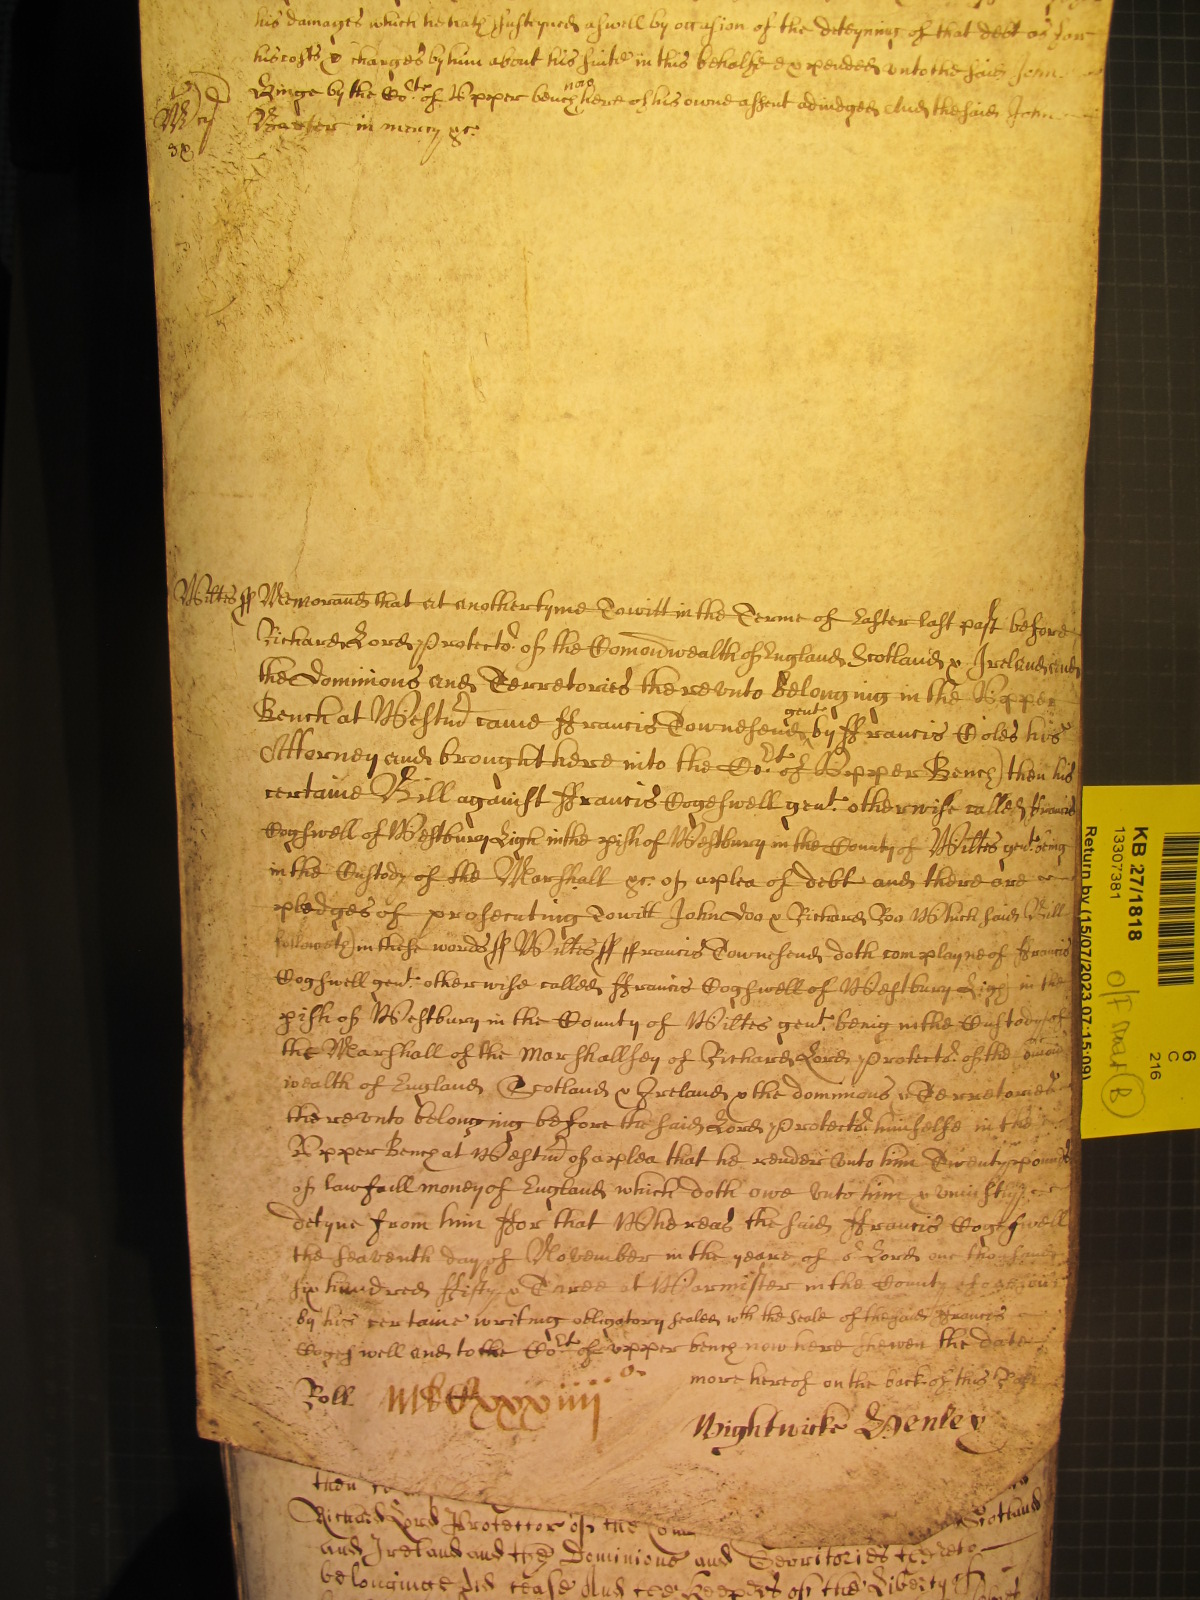 his damages which he hath susteyned aswell by occasion of the deteyning of that debt as for
his costs & charges by him about his suite in this behalfe expended unto the said John
Ringe by the Cort of Upper bench now here of his owne assent adiudged And the said John
Baxter in mercy &c
Mcy
Wiltes ss Memorand that at another tyme Towitt in the Terme of Easter last past before
Richard Lord Protector of the Comonwealth of England Scotland & Ireland and
the Dominions and Terretories thereunto belonging in the Upper
Bench at Westmr came ffrancis Townesend gent by ffrancis Coles his
Attorney and brought here into the Cort of Upper Bench then his
certaine Bill against ffrancis Cogeswell gent. otherwise called ffrancis
Cogswell of Westbury Ligh in the pish of Westbury in the County of Wiltes gent. being
in the Custody of the Marshall &c. of a plea of debt and there are
pledges of prosecuting Towitt John Doo & Richard Roo Which said Bill
followeth in these words ss Wiltes ss ffrancis Townesend doth complayne of ffrancis
Cogswell gent. otherwise called ffrancis Cogswell of Westbury Ligh in the
pish of Westbury in the County of Wiltes gent. being in the Custody of
the Marshall of the Marshallsey of Richard Lord Protector of the Comon
wealth of England Scotland & Ireland & the dominions & Terretories
thereunto belonging before the said Lord Protector himselfe in the
Upper Bench at Westmr of a plea that he render unto him Twenty pounds
of lawfull money of England which doth owe unto him & uniustly
deteyne from him ffor that Whereas the said ffrancis Cogeswell
the seaventh day of November in the yeare of or Lord one thousand
six hundred ffifty & Three at Warmister in the County aforesaid
by his certaine writing obligatory sealed wth the Seale of the said ffrancis
Cogeswell and to the Cort of upper bench now here shewen the date
more hereof on the back of this Roll
Roll MCCxxxiiij
Wightwicke Henley
then
Richard Lord Protector of the Com Scotland
and Ireland and the Dominions and Territories thereto
belonginge did cease And the Keepers of the Liberty of
KB 27/1818
13307381
Return by (15/07/2023 07:15:09)
6
C
216